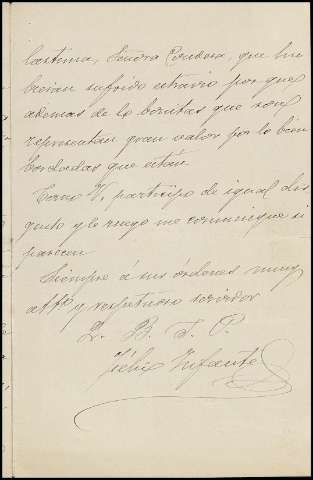 lastima, Señora Condesa, que hu
bieran sufrido extravio por que
ademas de lo bonitas que son
representan gran valor por lo bien
bordadas que estan
Como V. participo de igual dis
gusto y le ruego me comunique si
parecen
Siempre á sus órdenes muy
att.º y respetuoso servidor
Q. B. S. P.
Félix Infante